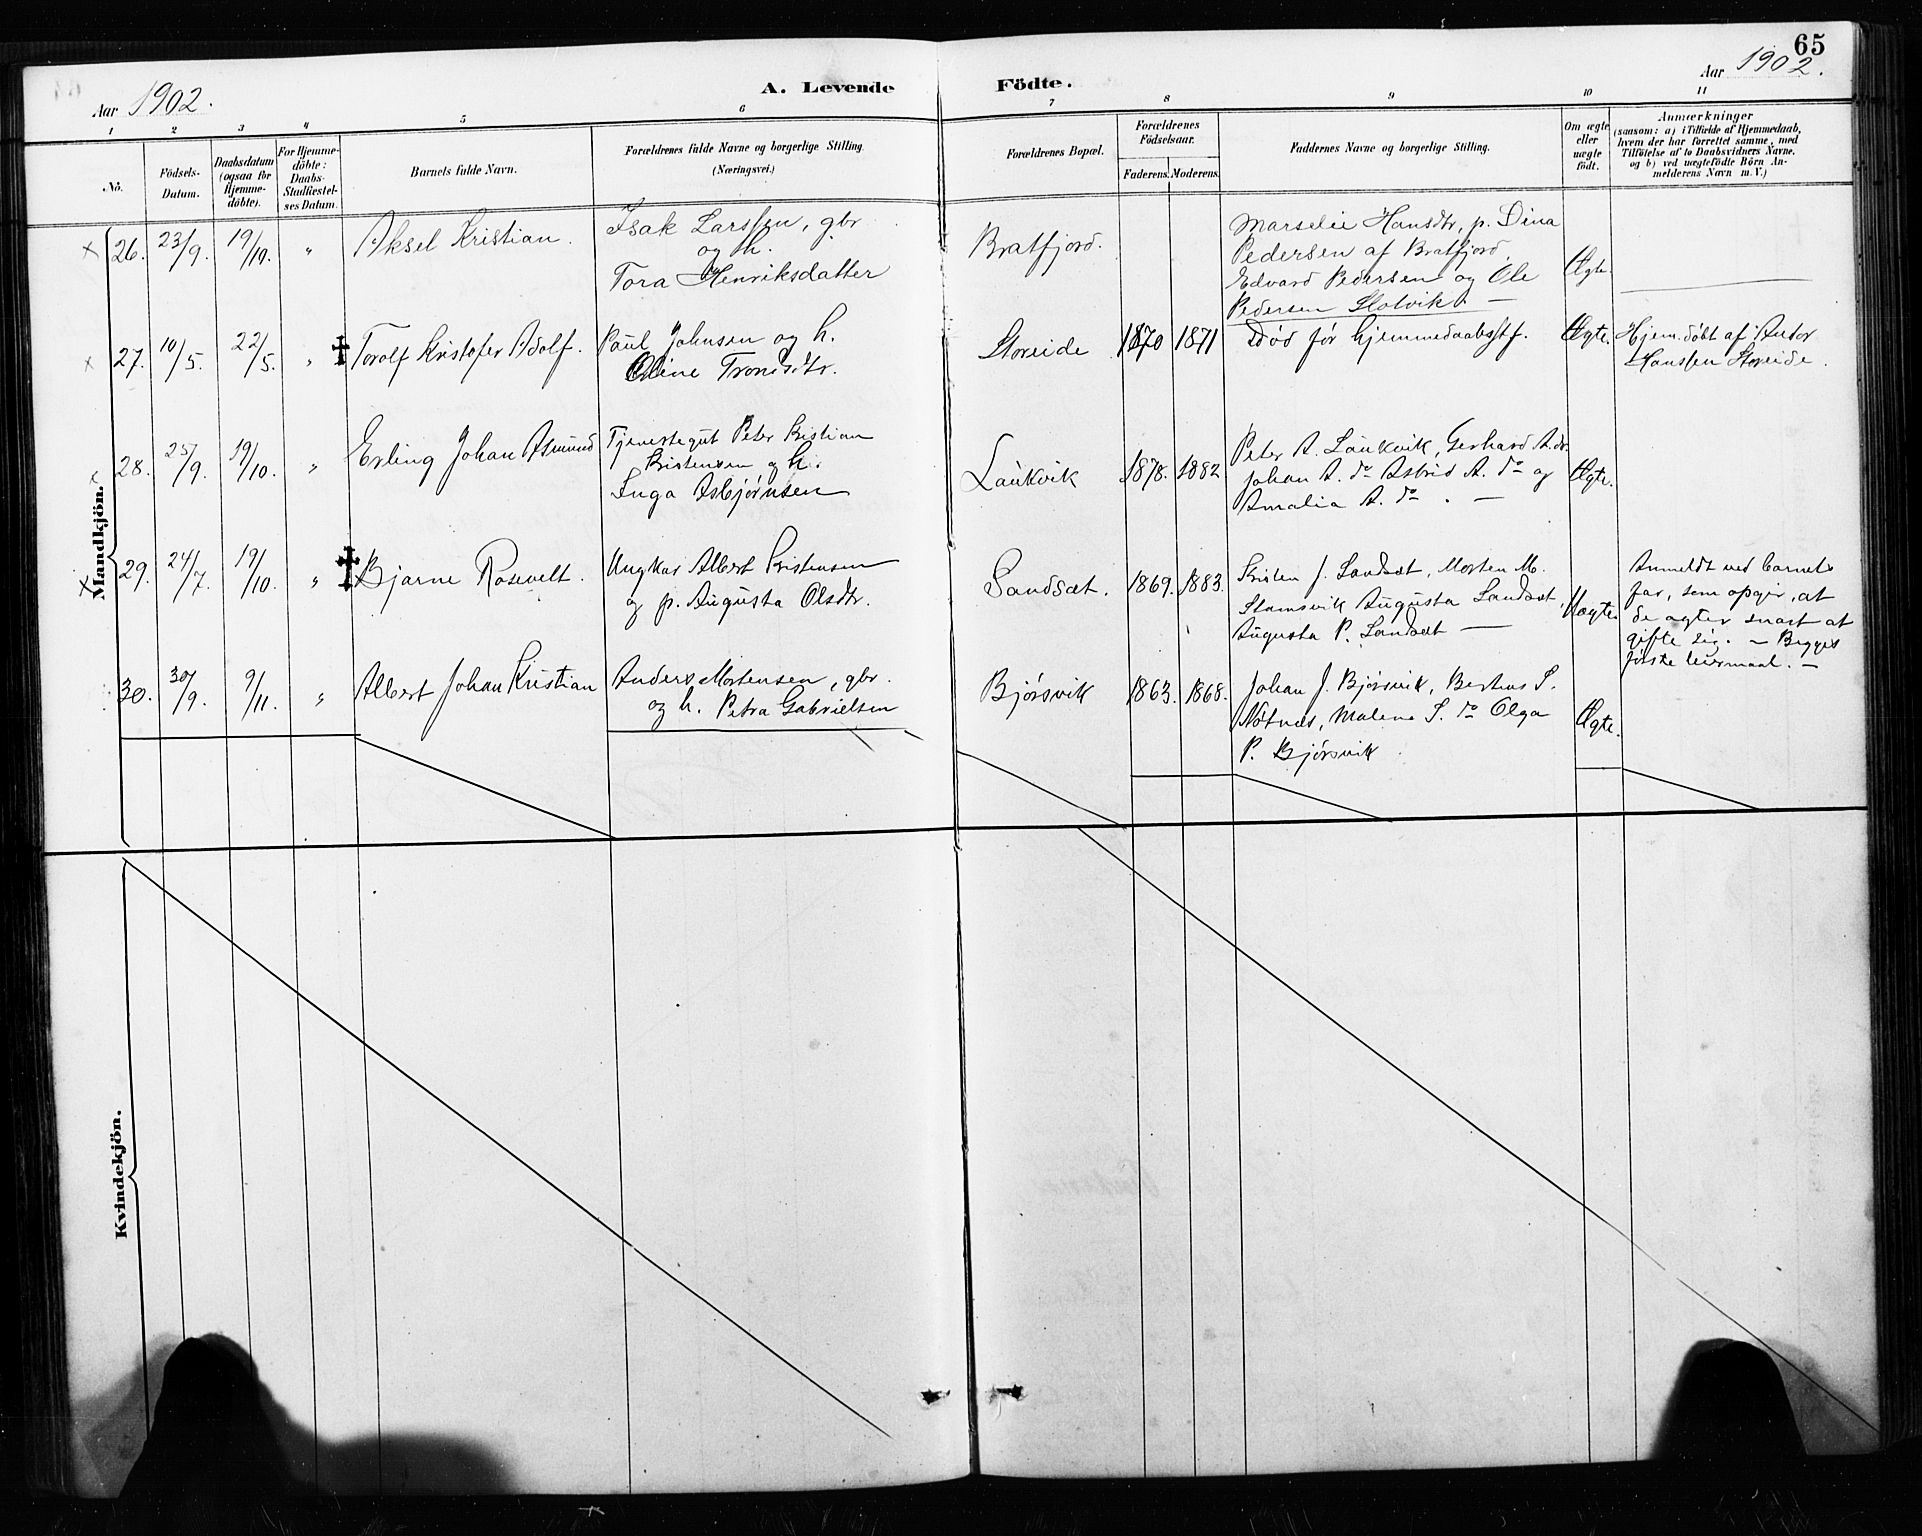 65
Aar 1902.
A. Levende Födte.
Aar 1902.
1 2 3 4 5 6 7 8 9 10 11
No.
Födsels-
Datum.
Daabsdatum
(ogsaa for
Hjemme-
döbte).
For Hjemme-
döbte:
Daabs-
Stadfæstel-
ses Datum.
Barnets fulde Navn.
Forældrenes fulde Navne og borgerlige Stilling.
(Næringsvei.)
Forældrenes Bopæl.
Forældrenes
Födselsaar.
Faderens. Moderens.
Faddernes Navne og borgerlige Stilling.
Om ægte
eller
uægte
födt.
Anmærkninger
(saasom: a) i Tilfælde af Hjemmedaab,
hvem der har forrettet samme, med
Tilföielse af to Daabsvidners Navne.
og b) ved uægtefödte Börn An-
melderens Navn m. V.)
Mandkjön.
26. 23/9. 19/10. " Aksel Kristian.
Isak Larssen, gbr.
og h.
Tora Henriksdatter
Bratfjord.
Marselie Hansdtr, p. Dina
Pedersen af Bratfjord,
Edvard Pedersen og Ole
Pedersen Slotvik. —
Ægte.
27. 10/5. 22/5. " † Torolf Kristofer Adolf.
Paul Johnsen og h.
Oline Trondsdtr.
Storeide 1870 1871
Død før hjemmedaabsstf.
Ægte.
Hjem.døbt af Andor
Hanssen Storeide.
28. 25/9. 19/10. " Erling Johan Asmund
Tjenestegut Peter Kristian
Kristensen og h.
Inga Asbjørnsen
Laukvik 1878. 1882
Peter A. Laukvik, Gerhard A. do
Johan A. do Astrid A. do og
Amalia A. do. —
Ægte.
29. 24/7. 19/10. " † Bjarne Rosevelt.
Ungkar Albert Kristensen
og p. Augusta Olsdtr.
Sandsæt. 1869. 1883.
Kristen J. Sandsæt, Morten M.
Stamsvik Augusta Sandsæt,
Augusta P. Sandsæt —
Uægte.
Anmeldt ved barnets
far, som opgir, at
de agter snart at
gifte sig. — Begges
første leiermaal. —
30. 30/9. 9/11. " Albert Johan Kristian
Anders Mortensen, gbr.
og h. Petra Gabrielsen
Bjørsvik 1863. 1868.
Johan J. Bjørsvik, Bertus S.
Nøtnes, Malene S. do Olga
P. Bjørsvik.
Ægte.
Kvindekjön.